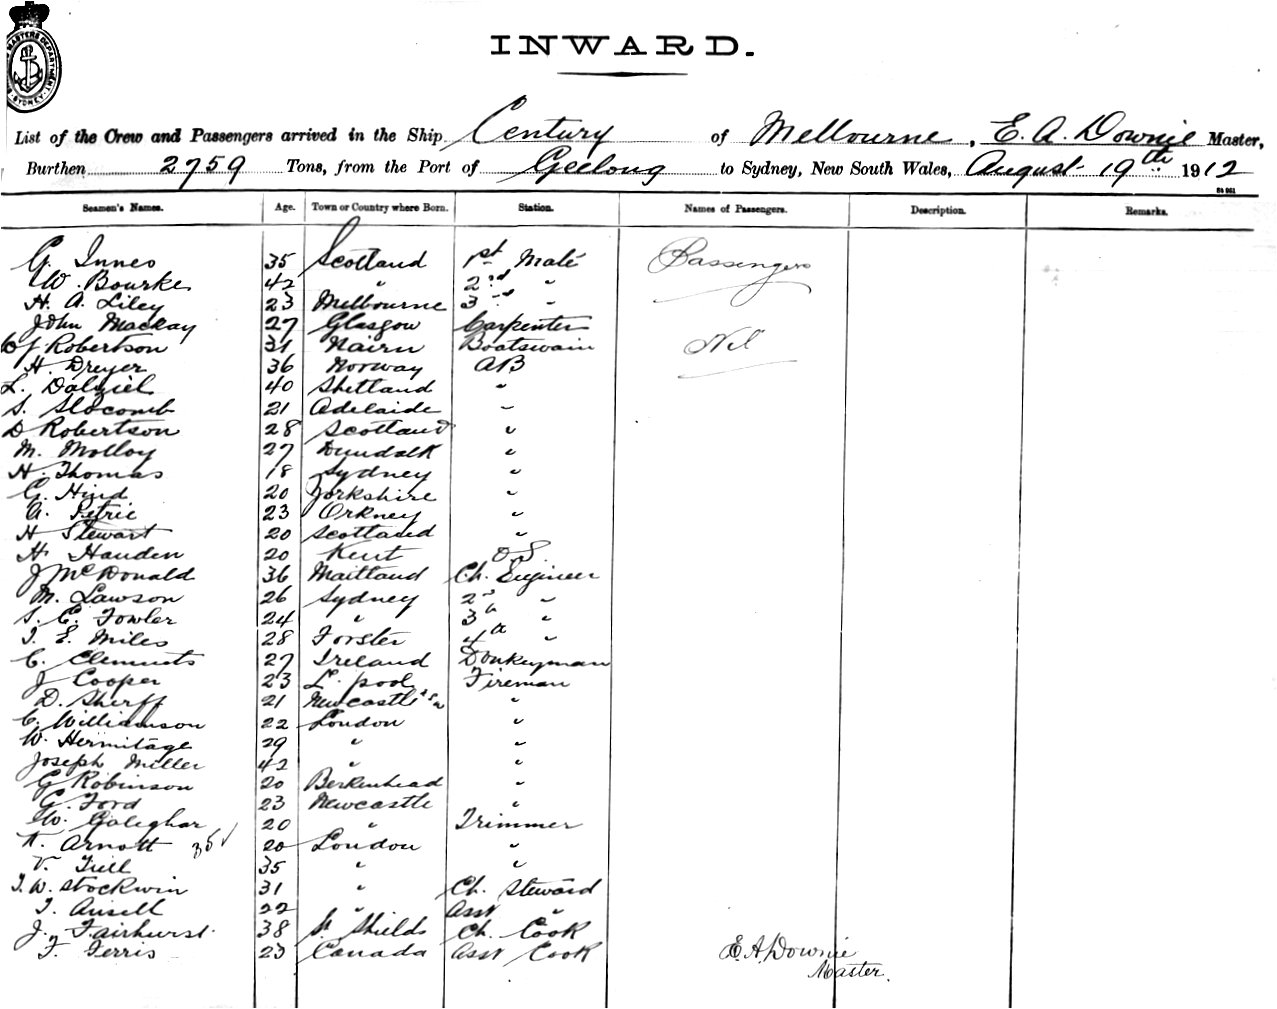 MASTERS DEPARTMENT SYDNEY
INWARD.
List of the Crew and Passengers arrived in the Ship Century of Melbourne, E. A. Downie Master,
Burthen 2759 Tons, from the Port of Geelong to Sydney, New South Wales, August 19th 1912
Seamen's Names. Age. Town or Country where Born. Station. Names of Passengers. Description. Remarks.
G. Innes 35 Scotland 1st Mate Passengers
W. Bourke 42 " 2nd "
H. A. Liley 23 Melbourne 3rd "
John Mackay 27 Glasgow Carpenter
Robertson 31 Nairn Boatswain Nil
H. Dreyer 36 Norway AB
L. Dalziel 40 Shetland "
S. Slocomb 21 Adelaide "
D Robertson 28 Scotland "
M. Molloy 27 Dundalk "
H. Thomas 18 Sydney "
G. Hind 20 Yorkshire "
A. Petrie 23 Orkney "
H Stewart 20 Scotland "
H. Handen 20 Kent O.S.
J McDonald 36 Maitland Ch. Engineer
M. Lawson 26 Sydney 2nd "
S. C. Fowler 24 " 3 "
J. E. Miles 28 Forster 4th "
C. Clements 27 Ireland Donkeyman
J Cooper 23 L. pool Fireman
D. Sherff 21 Newcastle "
C. Williamson 22 London "
W. Hermitage 29 " "
Joseph Miller 42 " "
G Robinson 20 Berkenhead "
G. Ford 23 Newcastle "
W. Galeghar 20 " Trimmer
Arnott 35 20 London "
V. Tiell 35 " "
J. W. Stockwin 31 " Ch. Steward
J. Ansell 22 " Asst "
J. Fairhurst 38 S. Shields Ch. Cook
F. Ferris 23 Canada Asst Cook
E. A. Downie
Master.